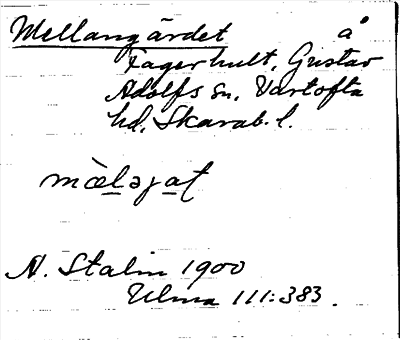 Mellangärdet å
Fagerhult, Gustav
Adolfs sn, Vartofta
hd, Skarab. l.
A. Stalin 1900
Ulma 111:383.